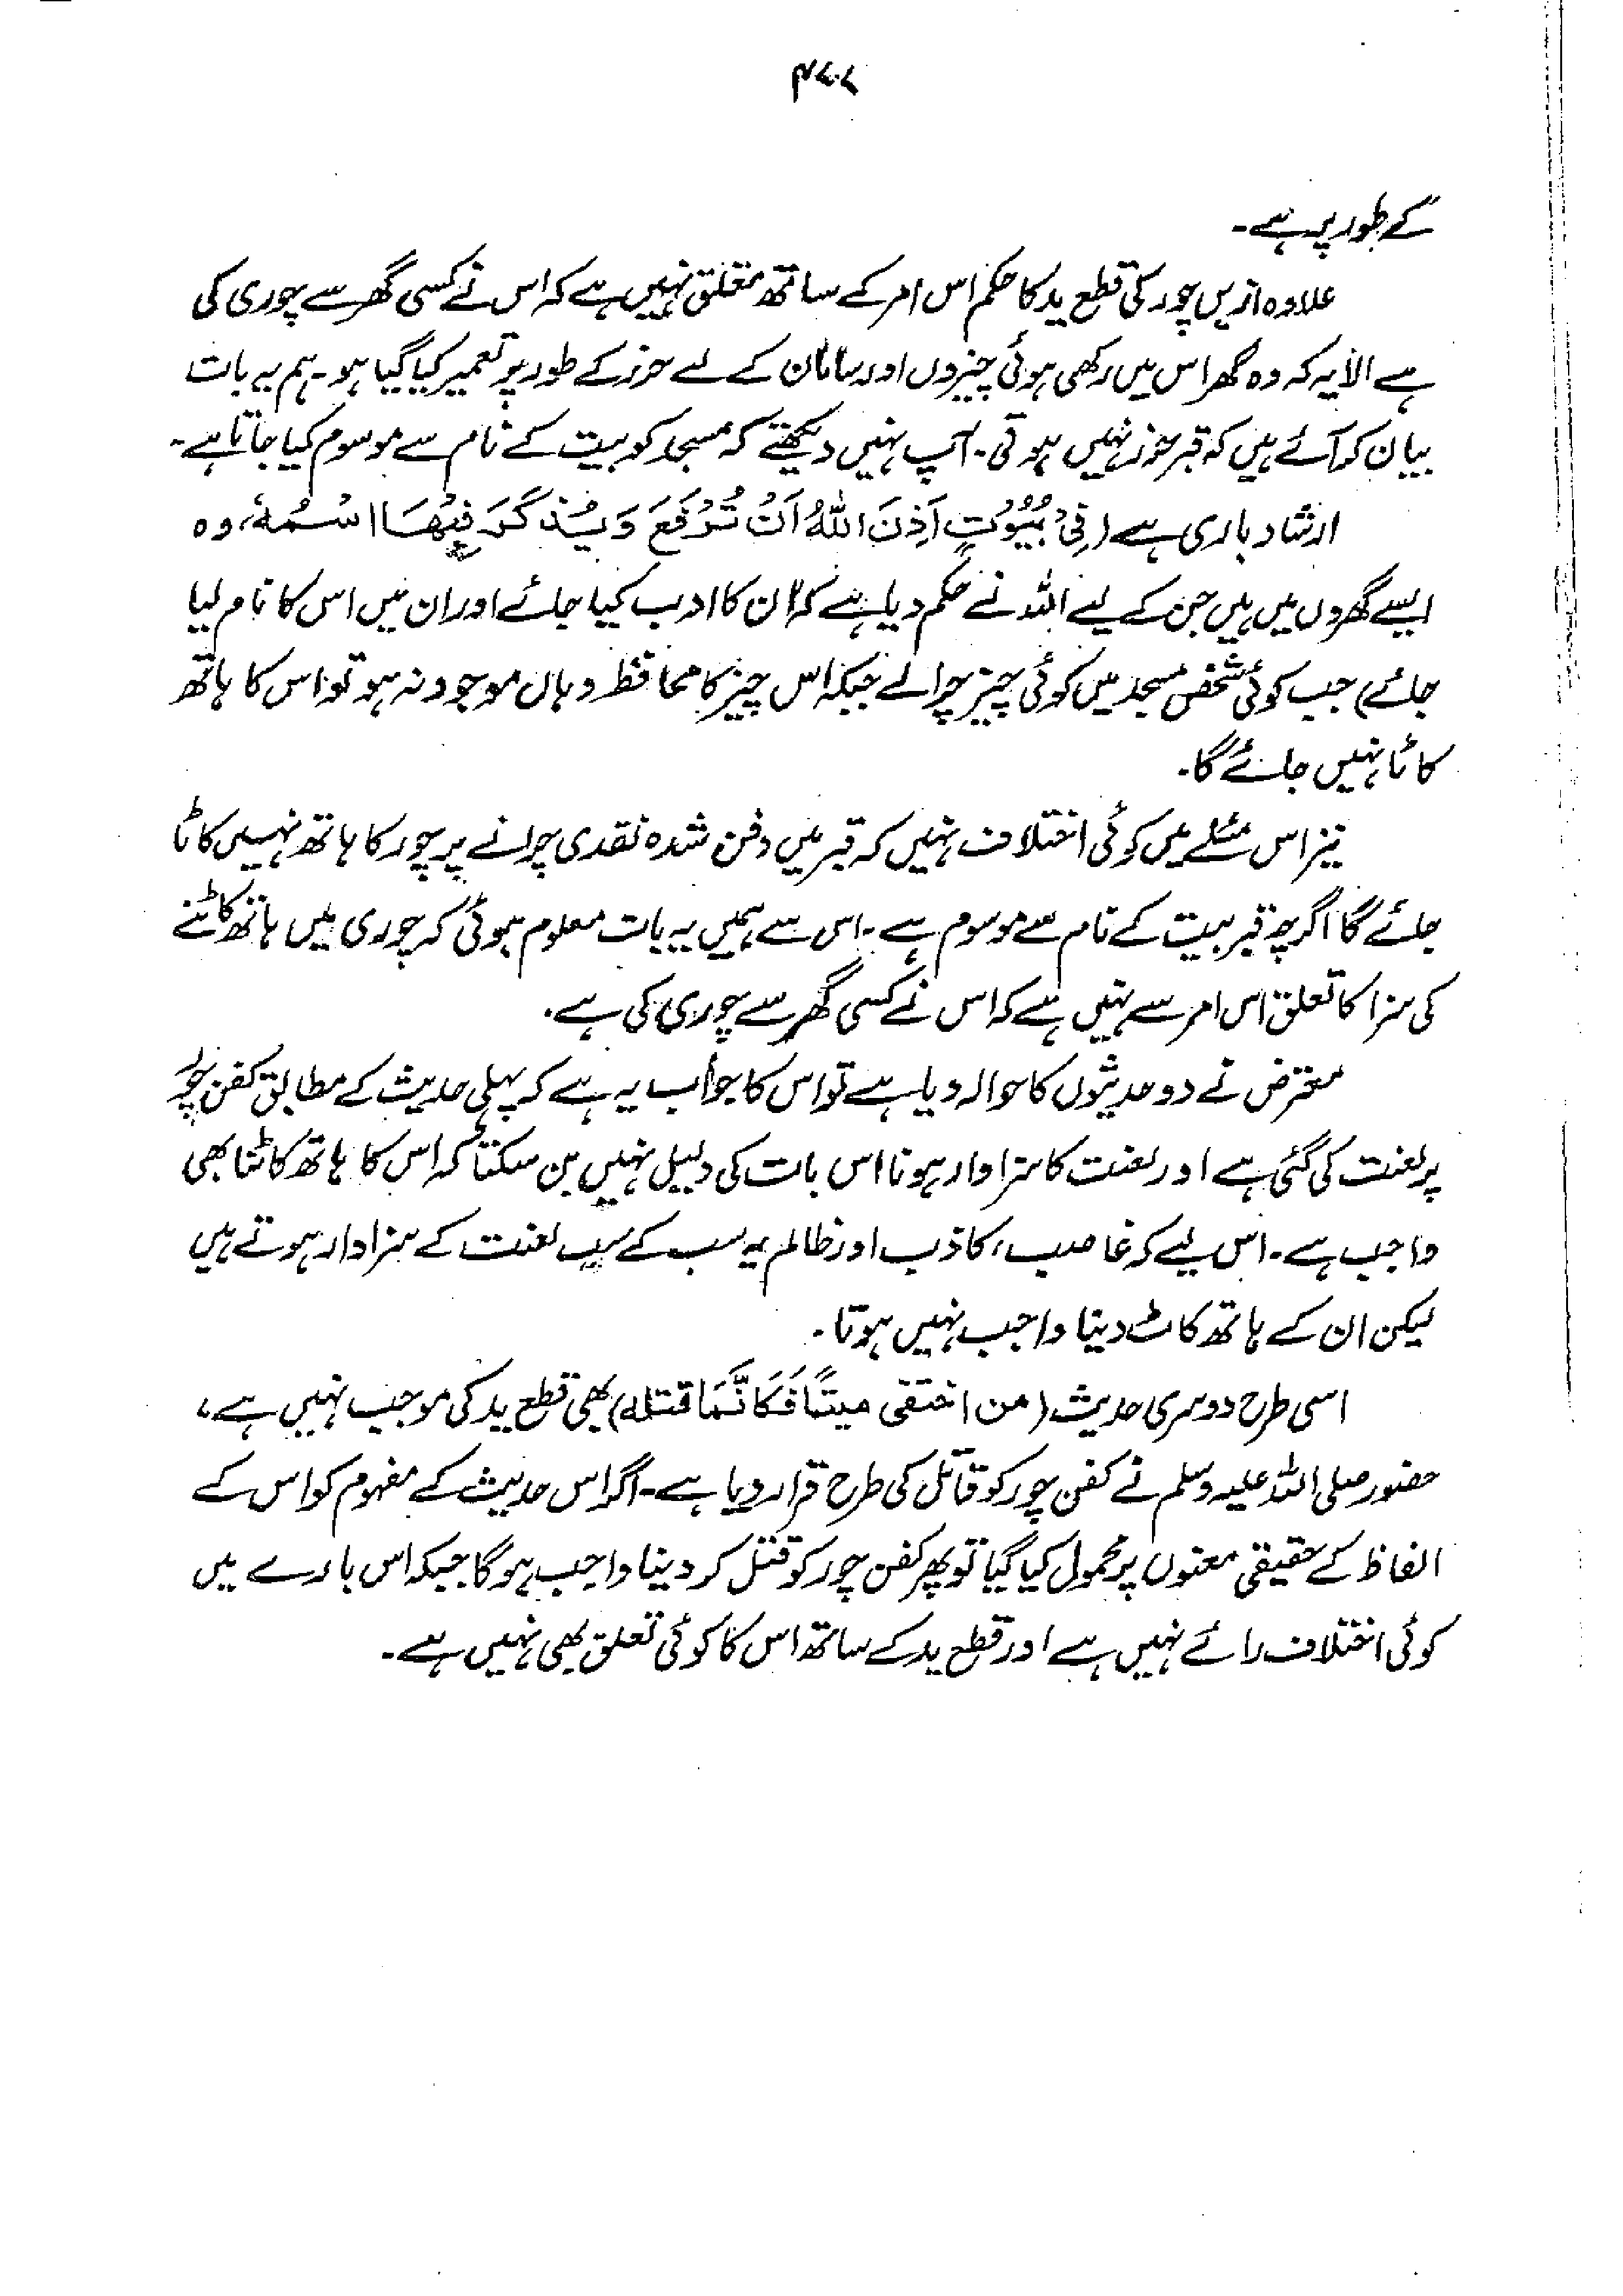 کے طور پر ہے۔
علاوہ ازیں چور کی قطع ید کا حکم اس امر کے ساتھ متعلق نہیں ہے کہ اس نے کسی گھر سے چوری کی
ہے الا یہ کہ وہ گھر اس میں رکھی ہوئی چیزوں اور سامان کے لیے حرز کے طور پر تعمیر کیا گیا ہو۔ ہم یہ بات
بیان کر آئے ہیں کہ قبر حرز نہیں ہوتی۔ آپ نہیں دیکھتے کہ مسجد کو بیت کے نام سے موسوم کیا جاتا ہے۔
ارشاد باری ہے (فِیْ بُیُوْتٍ اَذِنَ اللّٰہُ اَنْ تُرْفَعَ وَیُذْکَرَ فِیْھَا اسْمُہٗ، وہ
ایسے گھروں میں ہیں جن کے لیے اللہ نے حکم دیا ہے کہ ان کا ادب کیا جائے اور ان میں اس کا نام لیا
جائے) جب کوئی شخص مسجد میں کوئی چیز چرا لے جبکہ اس چیز کا محافظ وہاں موجود نہ ہو تو اس کا ہاتھ
کاٹا نہیں جائے گا۔
نیز اس مسئلے میں کوئی اختلاف نہیں کہ قبر میں دفن شدہ نقدی چرانے پر چور کا ہاتھ نہیں کاٹا
جائے گا اگرچہ قبر بیت کے نام سے موسوم ہے۔ اس سے ہمیں یہ بات معلوم ہوئی کہ چوری میں ہاتھ کاٹنے
کی سزا کا تعلق اس امر سے نہیں ہے کہ اس نے کسی گھر سے چوری کی ہے۔
معترض نے دو حدیثوں کا حوالہ دیا ہے تو اس کا جواب یہ ہے کہ پہلی حدیث کے مطابق کفن چور
پر لعنت کی گئی ہے اور لعنت کا سزاوار ہونا اس بات کی دلیل نہیں بن سکتا کہ اس کا ہاتھ کاٹنا بھی
واجب ہے۔ اس لیے کہ غاصب، کاذب اور ظالم یہ سب کے سب لعنت کے سزاوار ہوتے ہیں
لیکن ان کے ہاتھ کاٹ دینا واجب نہیں ہوتا۔
اسی طرح دوسری حدیث (من اختفی میتًا فَکَاَنَّمَا قتلہ) بھی قطع ید کی موجب نہیں ہے،
حضور صلی اللہ علیہ وسلم نے کفن چور کو قاتل کی طرح قرار دیا ہے۔ اگر اس حدیث کے مفہوم کو اس کے
الفاظ کے حقیقی معنوں پر محمول کیا گیا تو پھر کفن چور کو قتل کر دینا واجب ہوگا جبکہ اس بارے میں
کوئی اختلاف رائے نہیں ہے اور قطع ید کے ساتھ اس کا کوئی تعلق بھی نہیں ہے۔